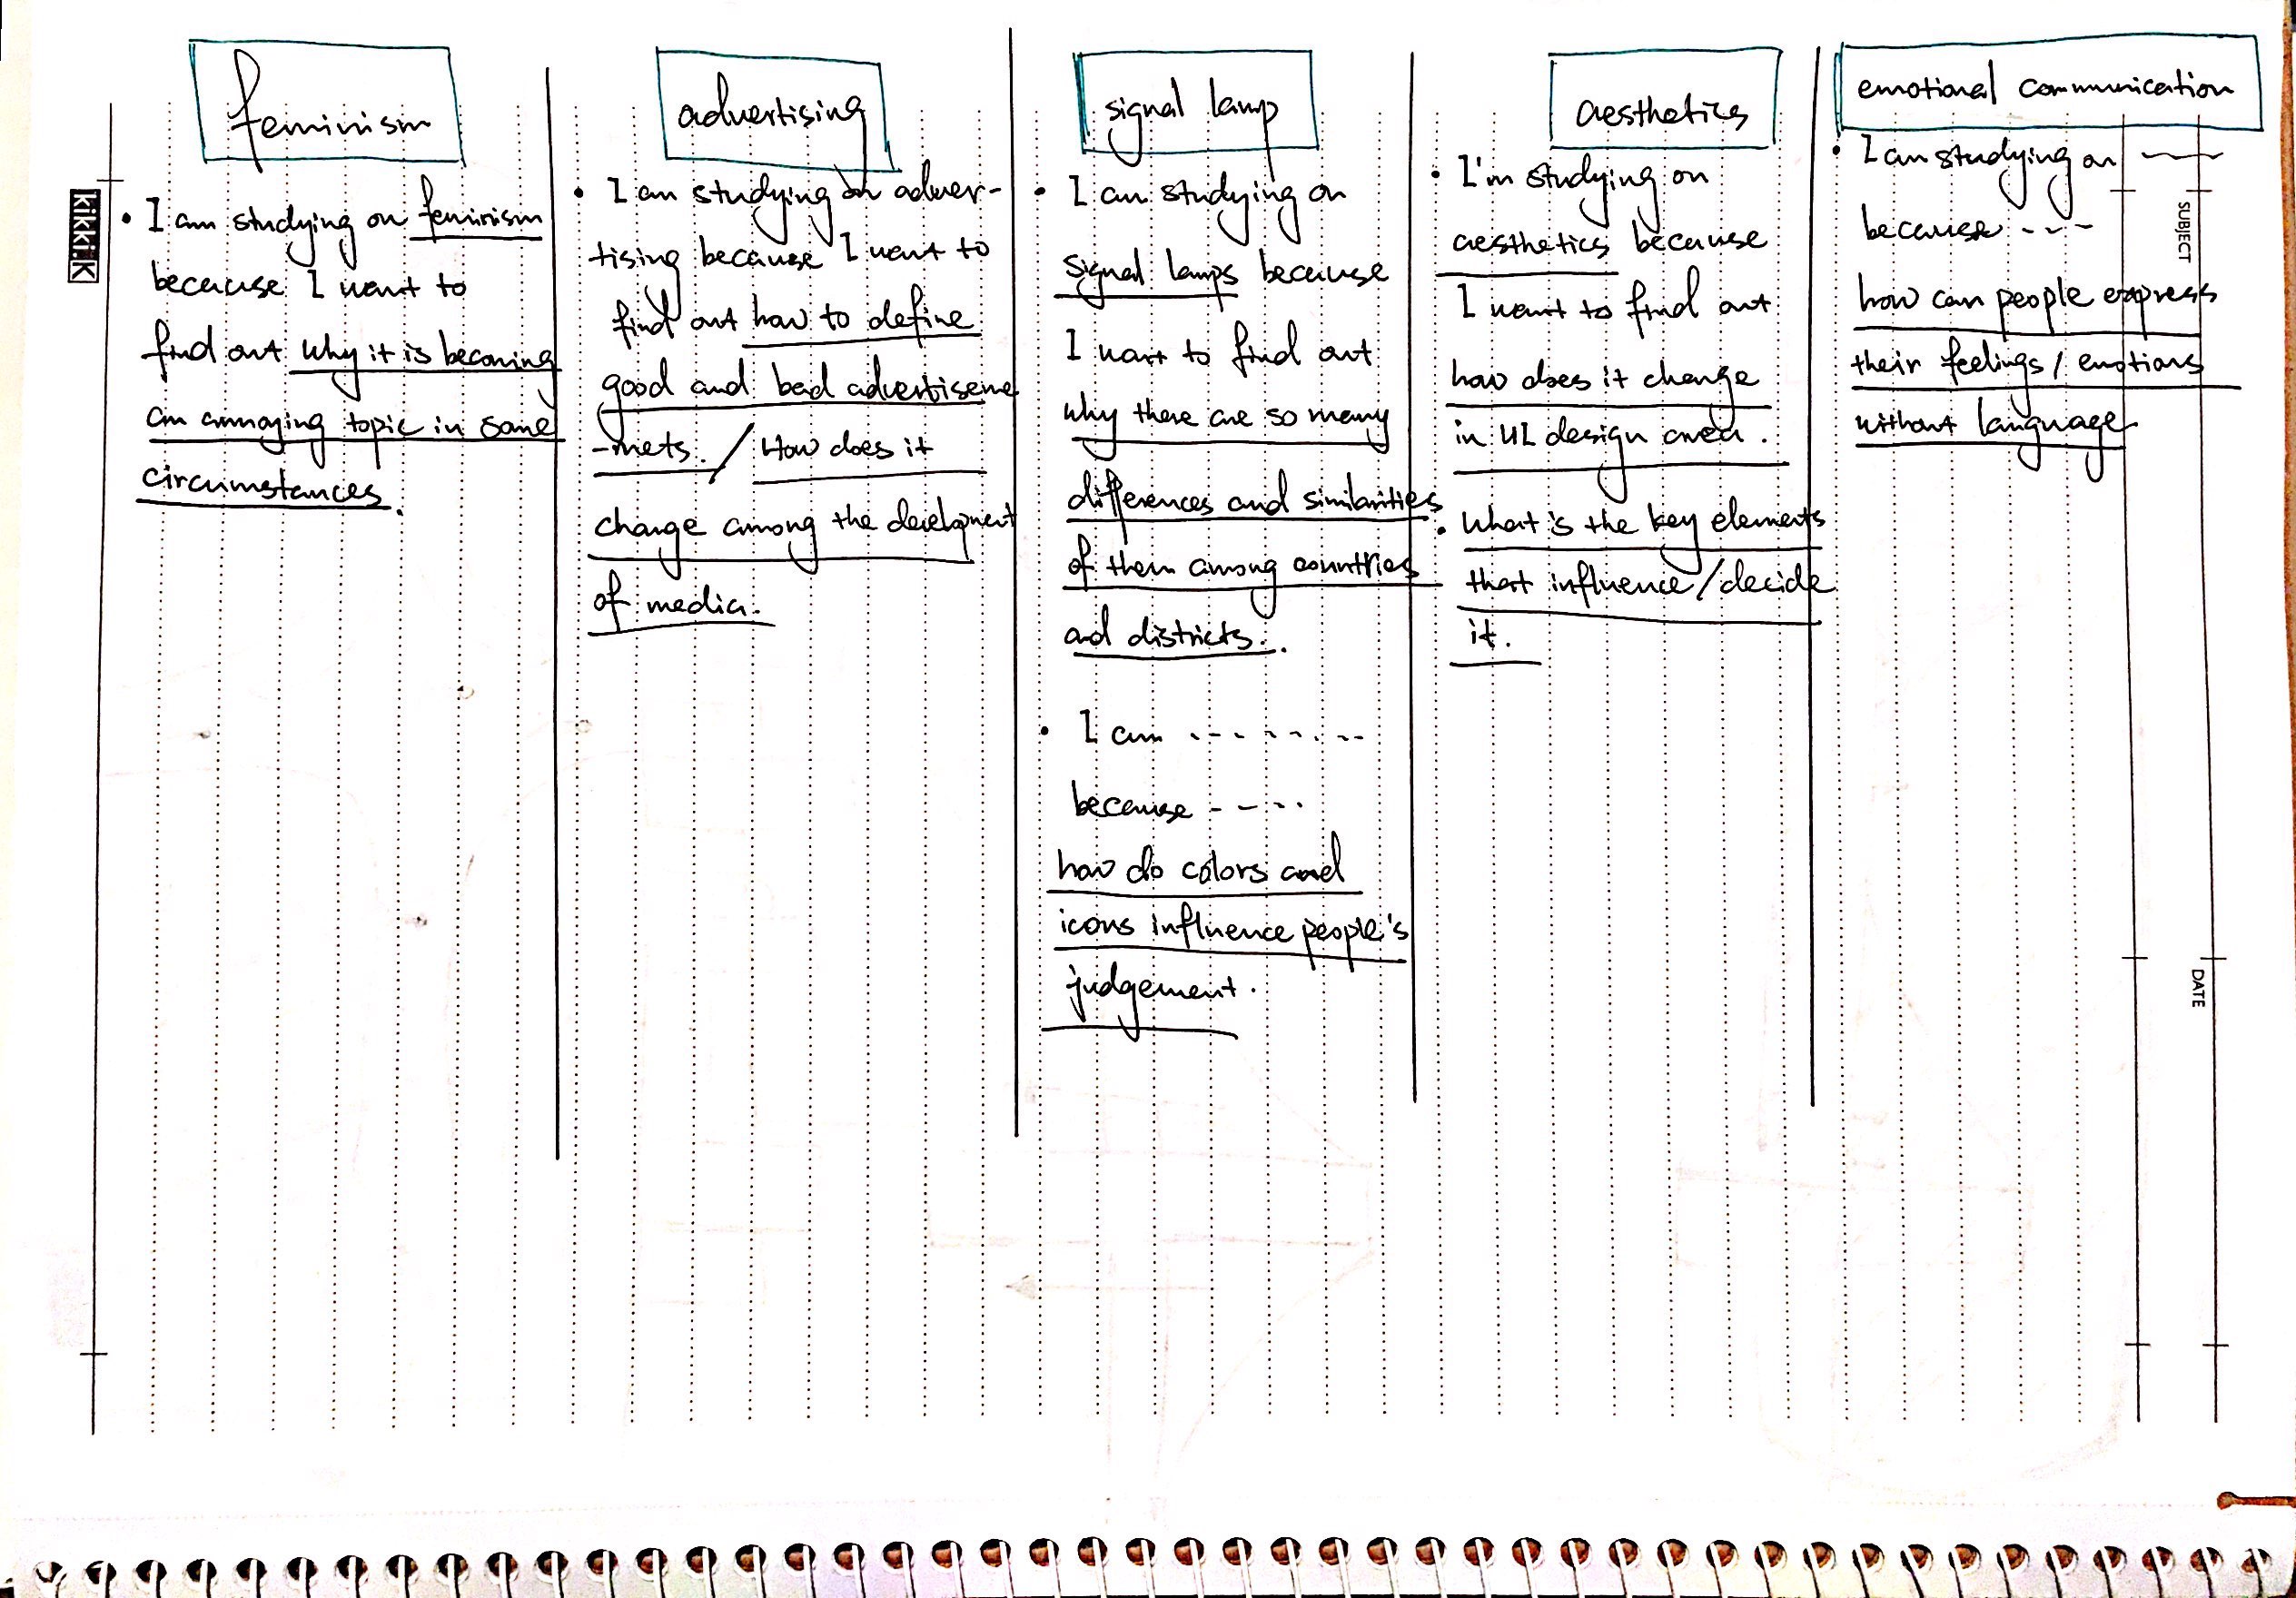 feminism
• I am studying on feminism
because I want to
find out why it is becoming
an annoying topic in some
circumstances.
advertising
• I am studying on adver-
tising because I want to
find out how to define
good and bad advertiseme
-mets. / How does it
change among the development
of media.
signal lamp
• I am studying on
signal lamps because
I want to find out
why there are so many
differences and similarities
of them among countries
and districts.
• I am - - - - - - - -
because - - - - -
how do colors and
icons influence people's
judgement.
aesthetics
• I'm studying on
aesthetics because
I want to find out
how does it change
in UI design area.
• What's the key elements
that influence/decide
it.
emotional communication
• I am studying on —
because - - -
how can people express
their feelings / emotions
without language
kikki.K
SUBJECT
DATE